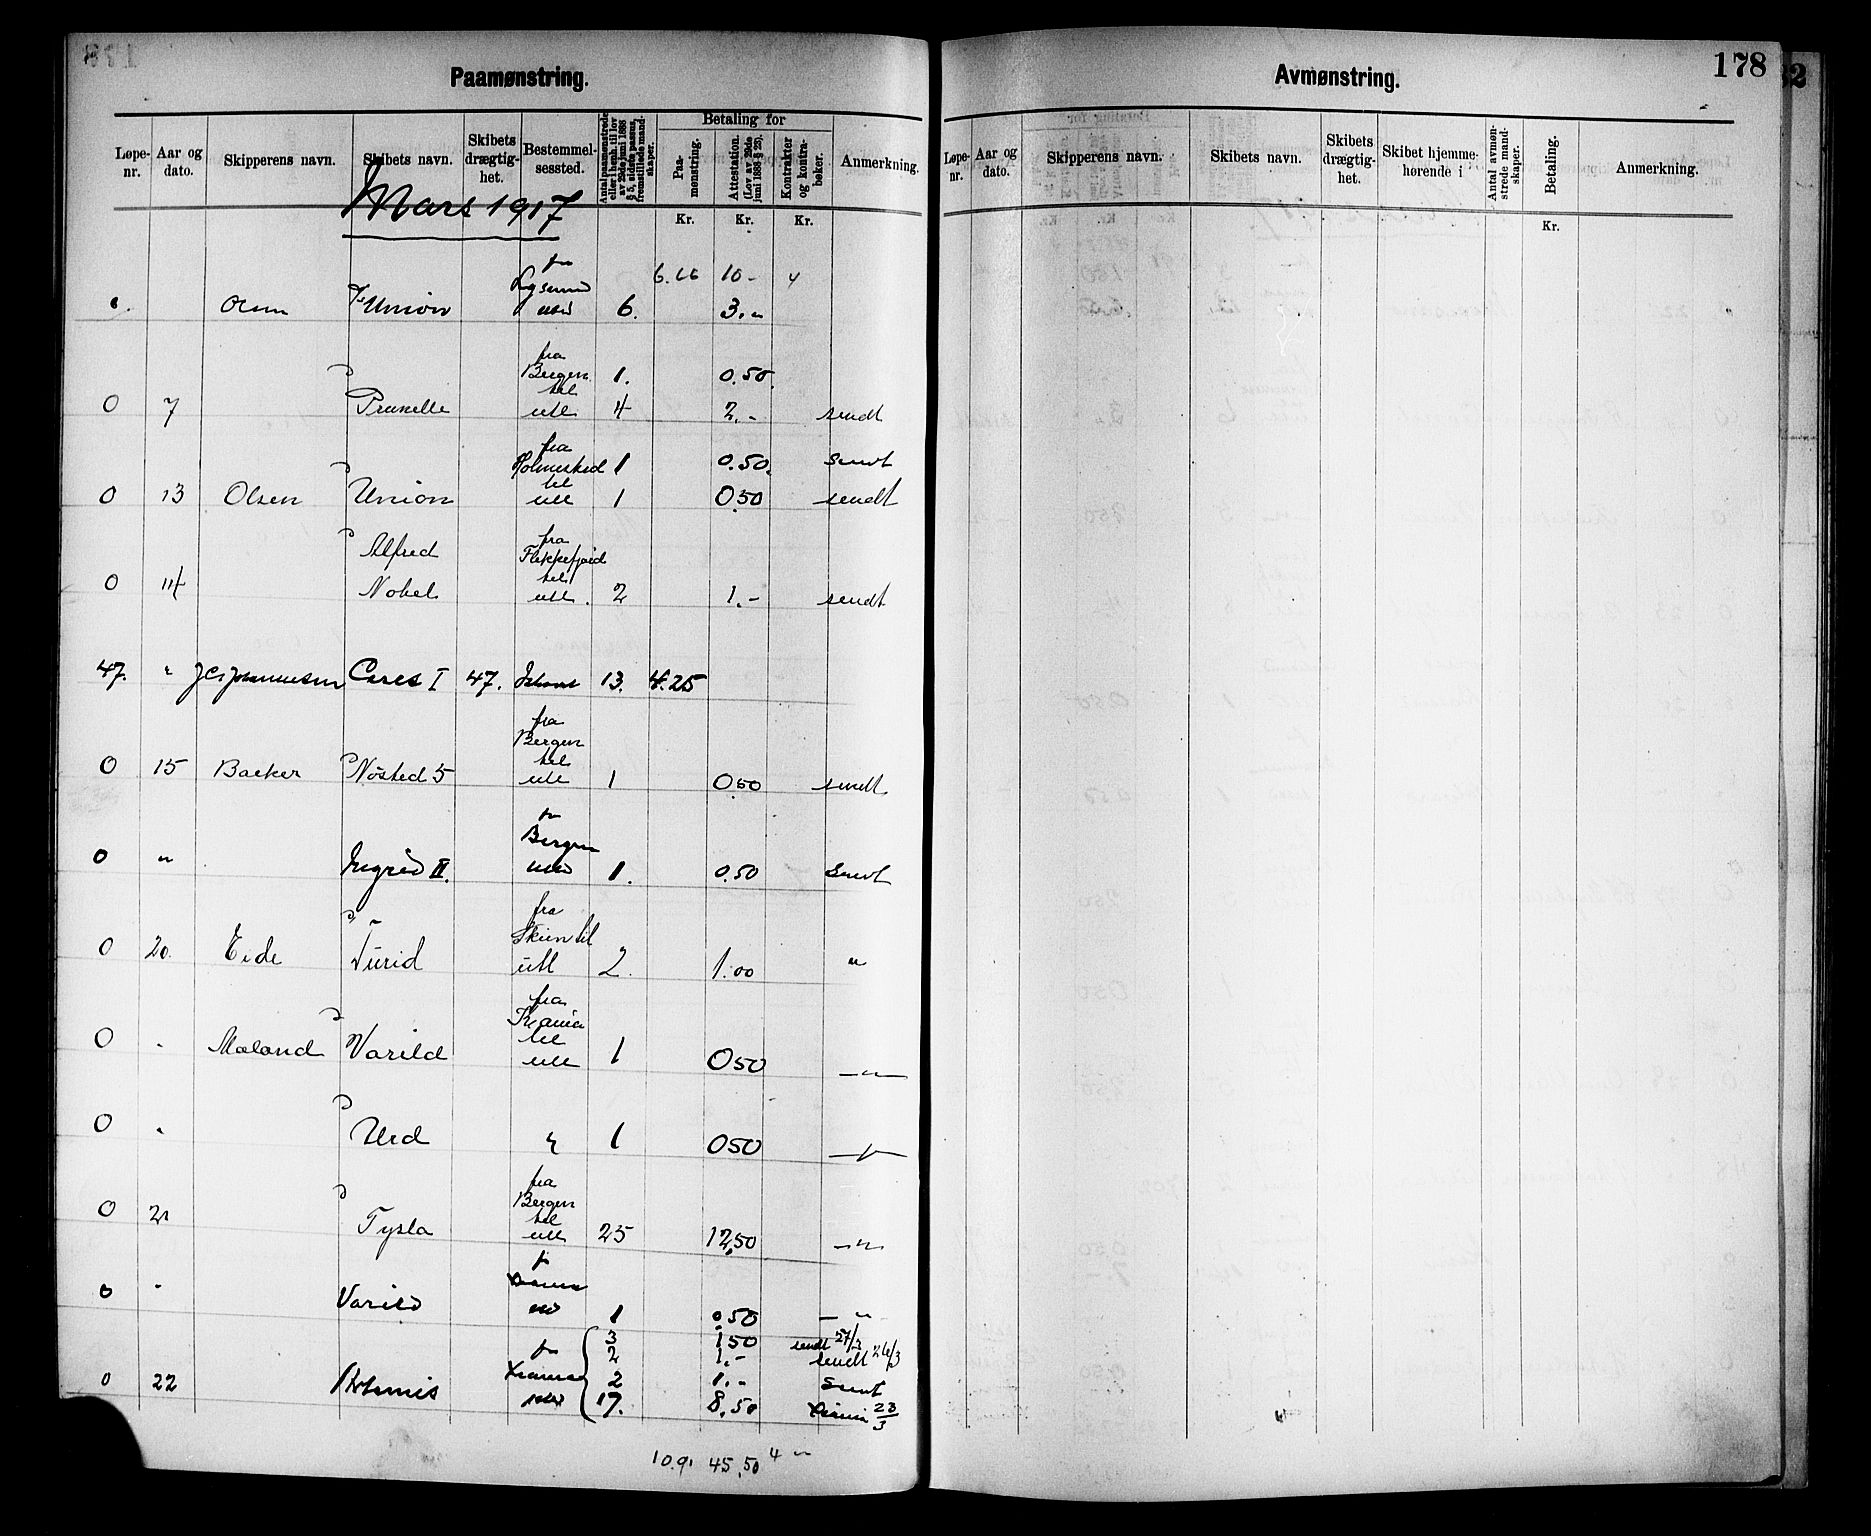 Paamønstring.
Løpe-nr. Aar og dato. Skipperens navn. Skibets navn. Skibets drægtighet. Bestemmelsessted. Antal paamønstrede eller i henh. til lov av 29de juni 1888 § 5, sidste passus, fremstillede mandskaper. Betaling for Paamønstring. Attestation. (Lov av 29de juni 1888 § 23). Kontrakter og kontrabøker. Anmerkning.
Mars 1917
Kr. Kr. Kr.
6.66 10.-
Olsen Union 6. 3.-
fra Bergen 1. 0.50
0 7 Prunelle til utl 4 2.- sendt
fra Holmestrand 1 0.50 sendt
0 13 Olsen Union til utl 1 0.50 sendt
0 14 Alfred Nobel fra Flekkefjord til utl. 2 1.- sendt
47. " Ceres I 47. 13. 4.25
0 15 Backer Nøsted 5 fra Bergen til utl 1 0.50 sendt
0 " Ingrid II. fr Bergen utld 1. 0.50 sendt
0 20. Eide Turid fra Skien til utl 2 1.00 "
0 " Maland Varild fra Krania til utl 1 0 50 - " -
0 " Urd " 1 0 50 - " -
0 21 Tysla fra Bergen til utl 25 12,50 - " -
0 " Varild fr 1 0,50 - "
0 22 Artemis fr Krania utld
3 1 50 sendt 27/3
2 1.- sendt 26/3
2 1.- sendt
17. 8.50 Krania 23/3
10.91 45,50 4 "
Avmønstring. 178
Løpe-nr. Aar og dato. Skipperens navn. Skibets navn. Skibets drægtighet. Skibet hjemmehørende i Antal avmønstrede mandskaper. Betaling. Anmerkning.
Kr.